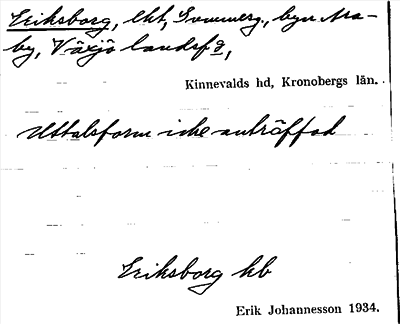 Eriksborg, lht, Sommarg., byn Ara-
by, Växjö landsf g,
Kinnevalds hd, Kronobergs län.
Uttalsform icke anträffad
Eriksborg hb
Erik Johannesson 1934.